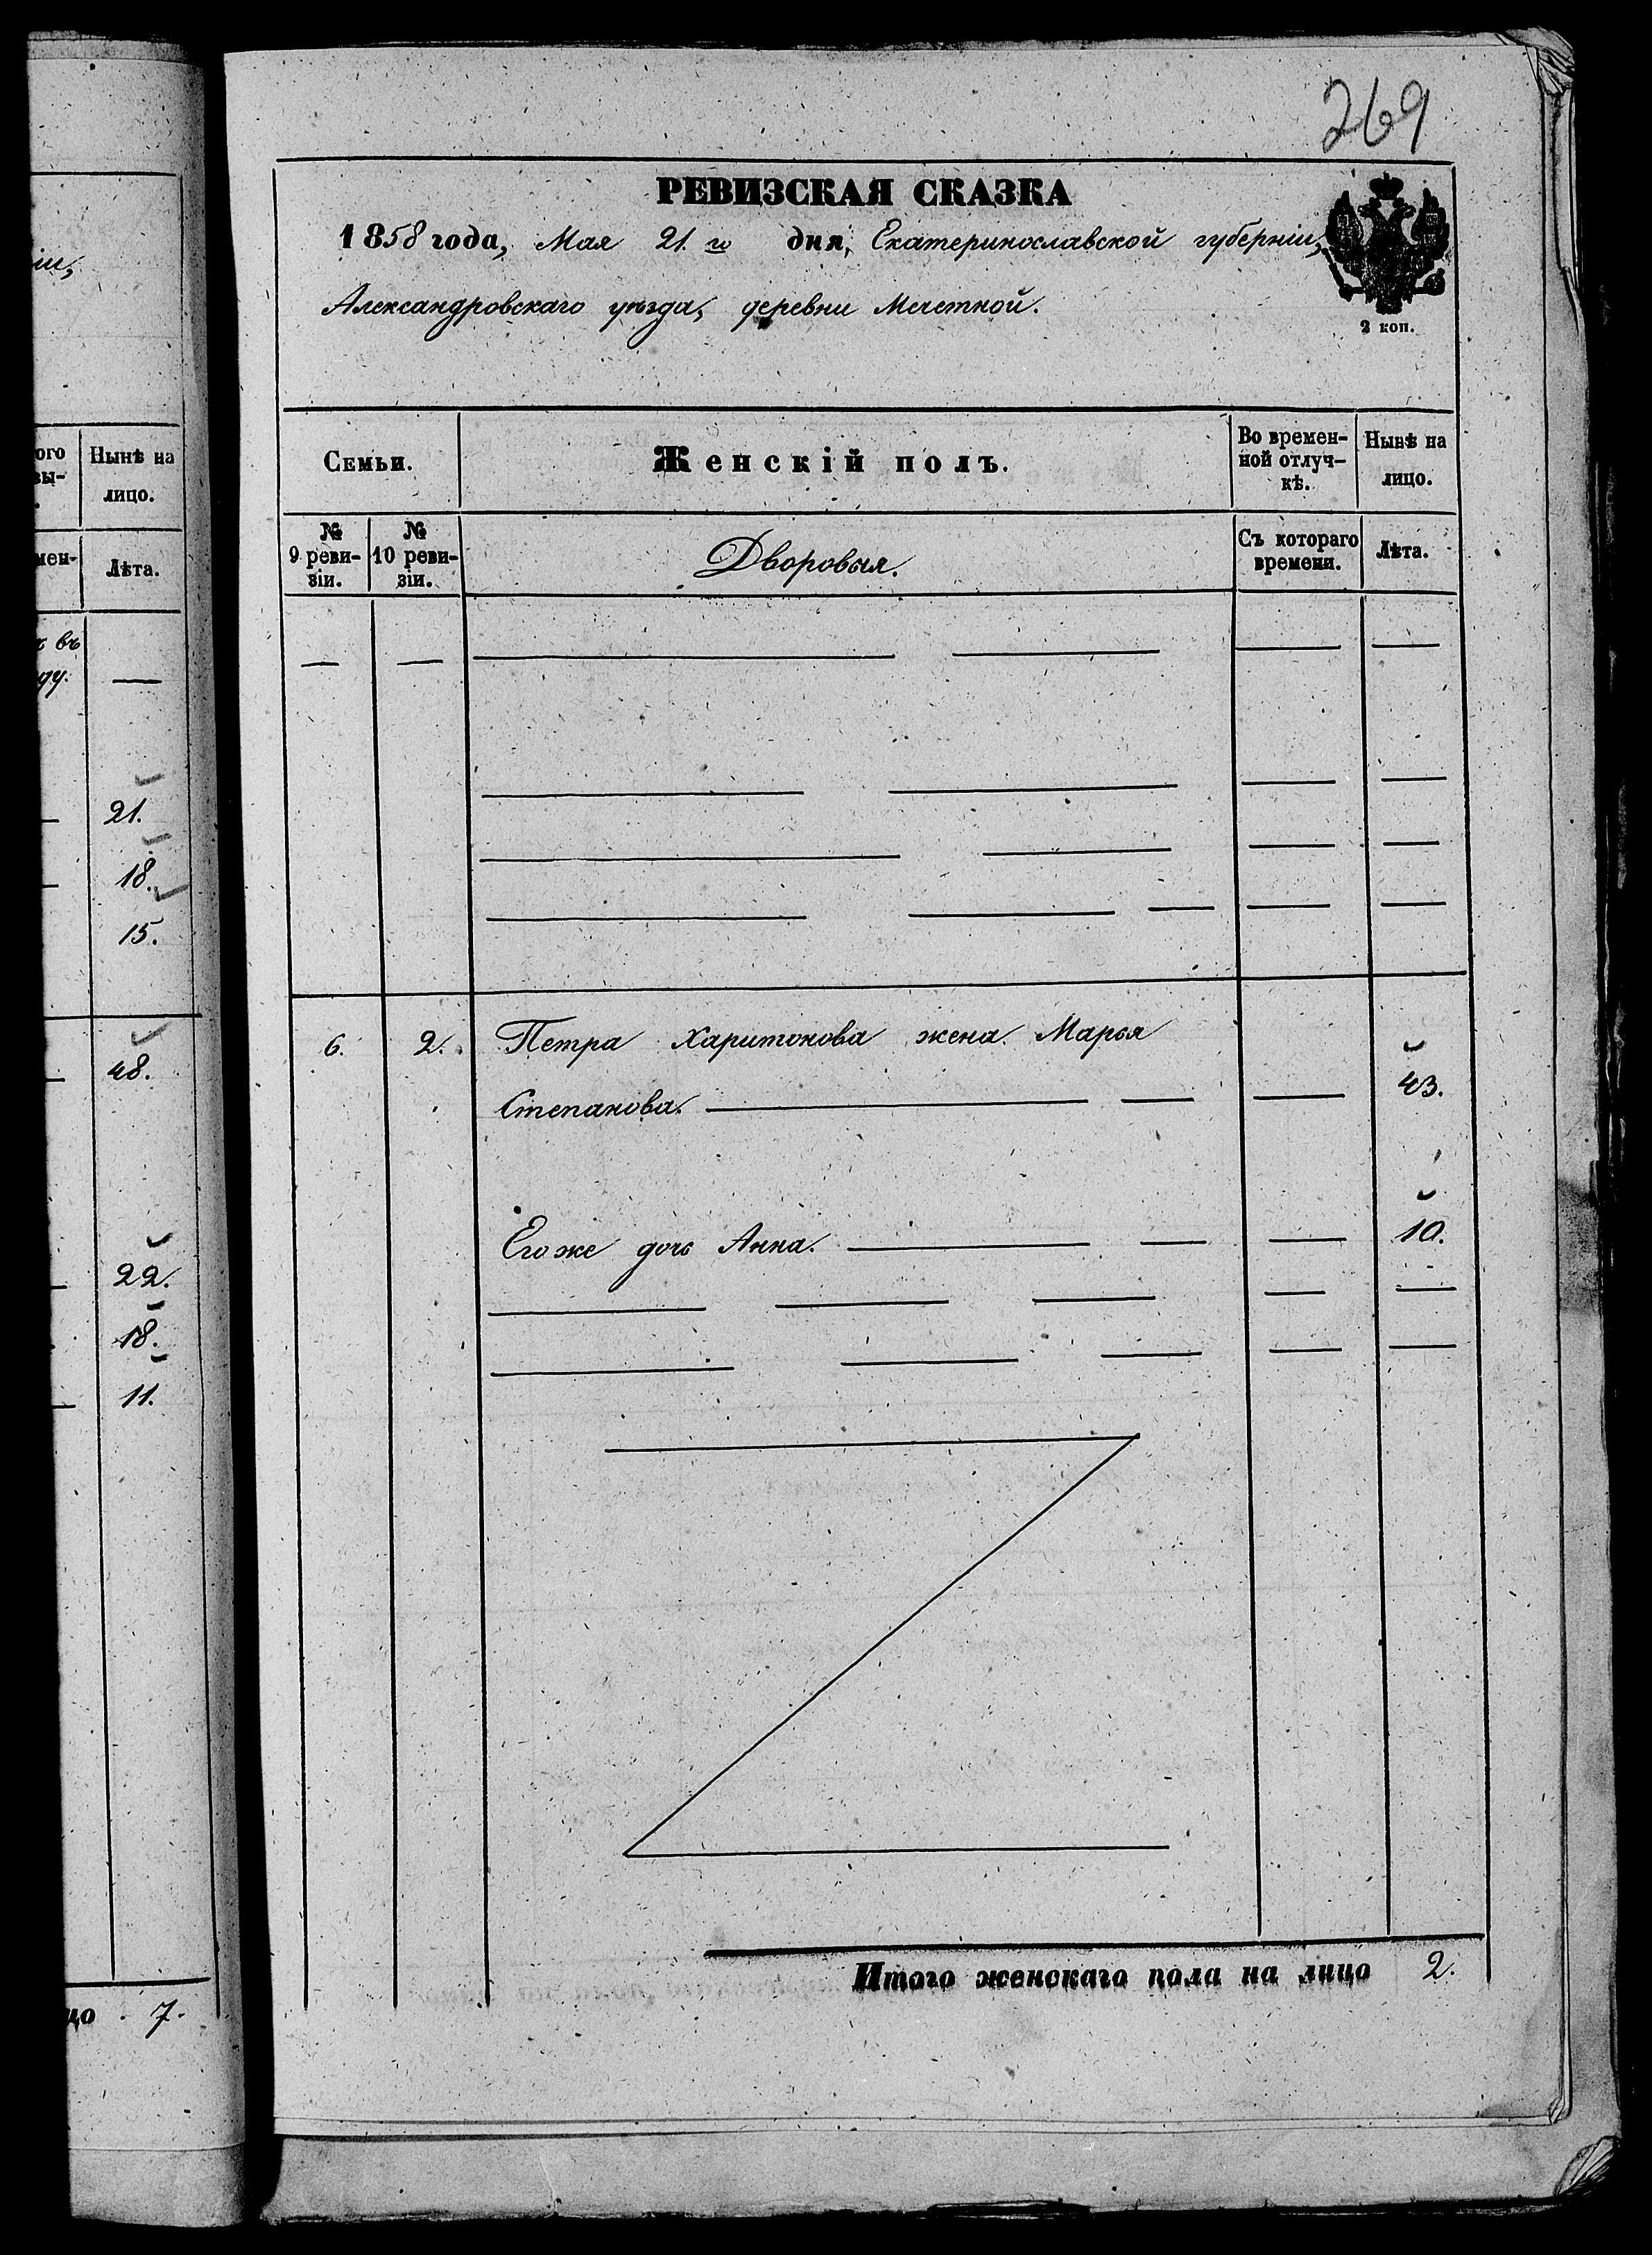 269
РЕВИЗСКАЯ СКАЗКА
1858 года, Мая 21. го дня, Екатеринославской губерніи,
Александровскаго уѣзда, деревни Мечетной.
2 коп.
Семьи.
Женскій полъ.
Во времен-
ной отлуч-
кѣ.
Нынѣ на
лицо.
№
9 реви-
зіи.
№
10 реви-
зіи.
Дворовыя.
Съ котораго
времени.
Лѣта.
6. 2. Петра Харитонова жена Марья
Степанова. 43.
Его же дочь Анна. 10.
Итого женскаго пола на лицо 2.
іи,
ого
вы-
Нынѣ на
лицо.
мен-
Лѣта.
въ
ду.
21.
18.
15.
48.
22.
18.
11.
цо 7.